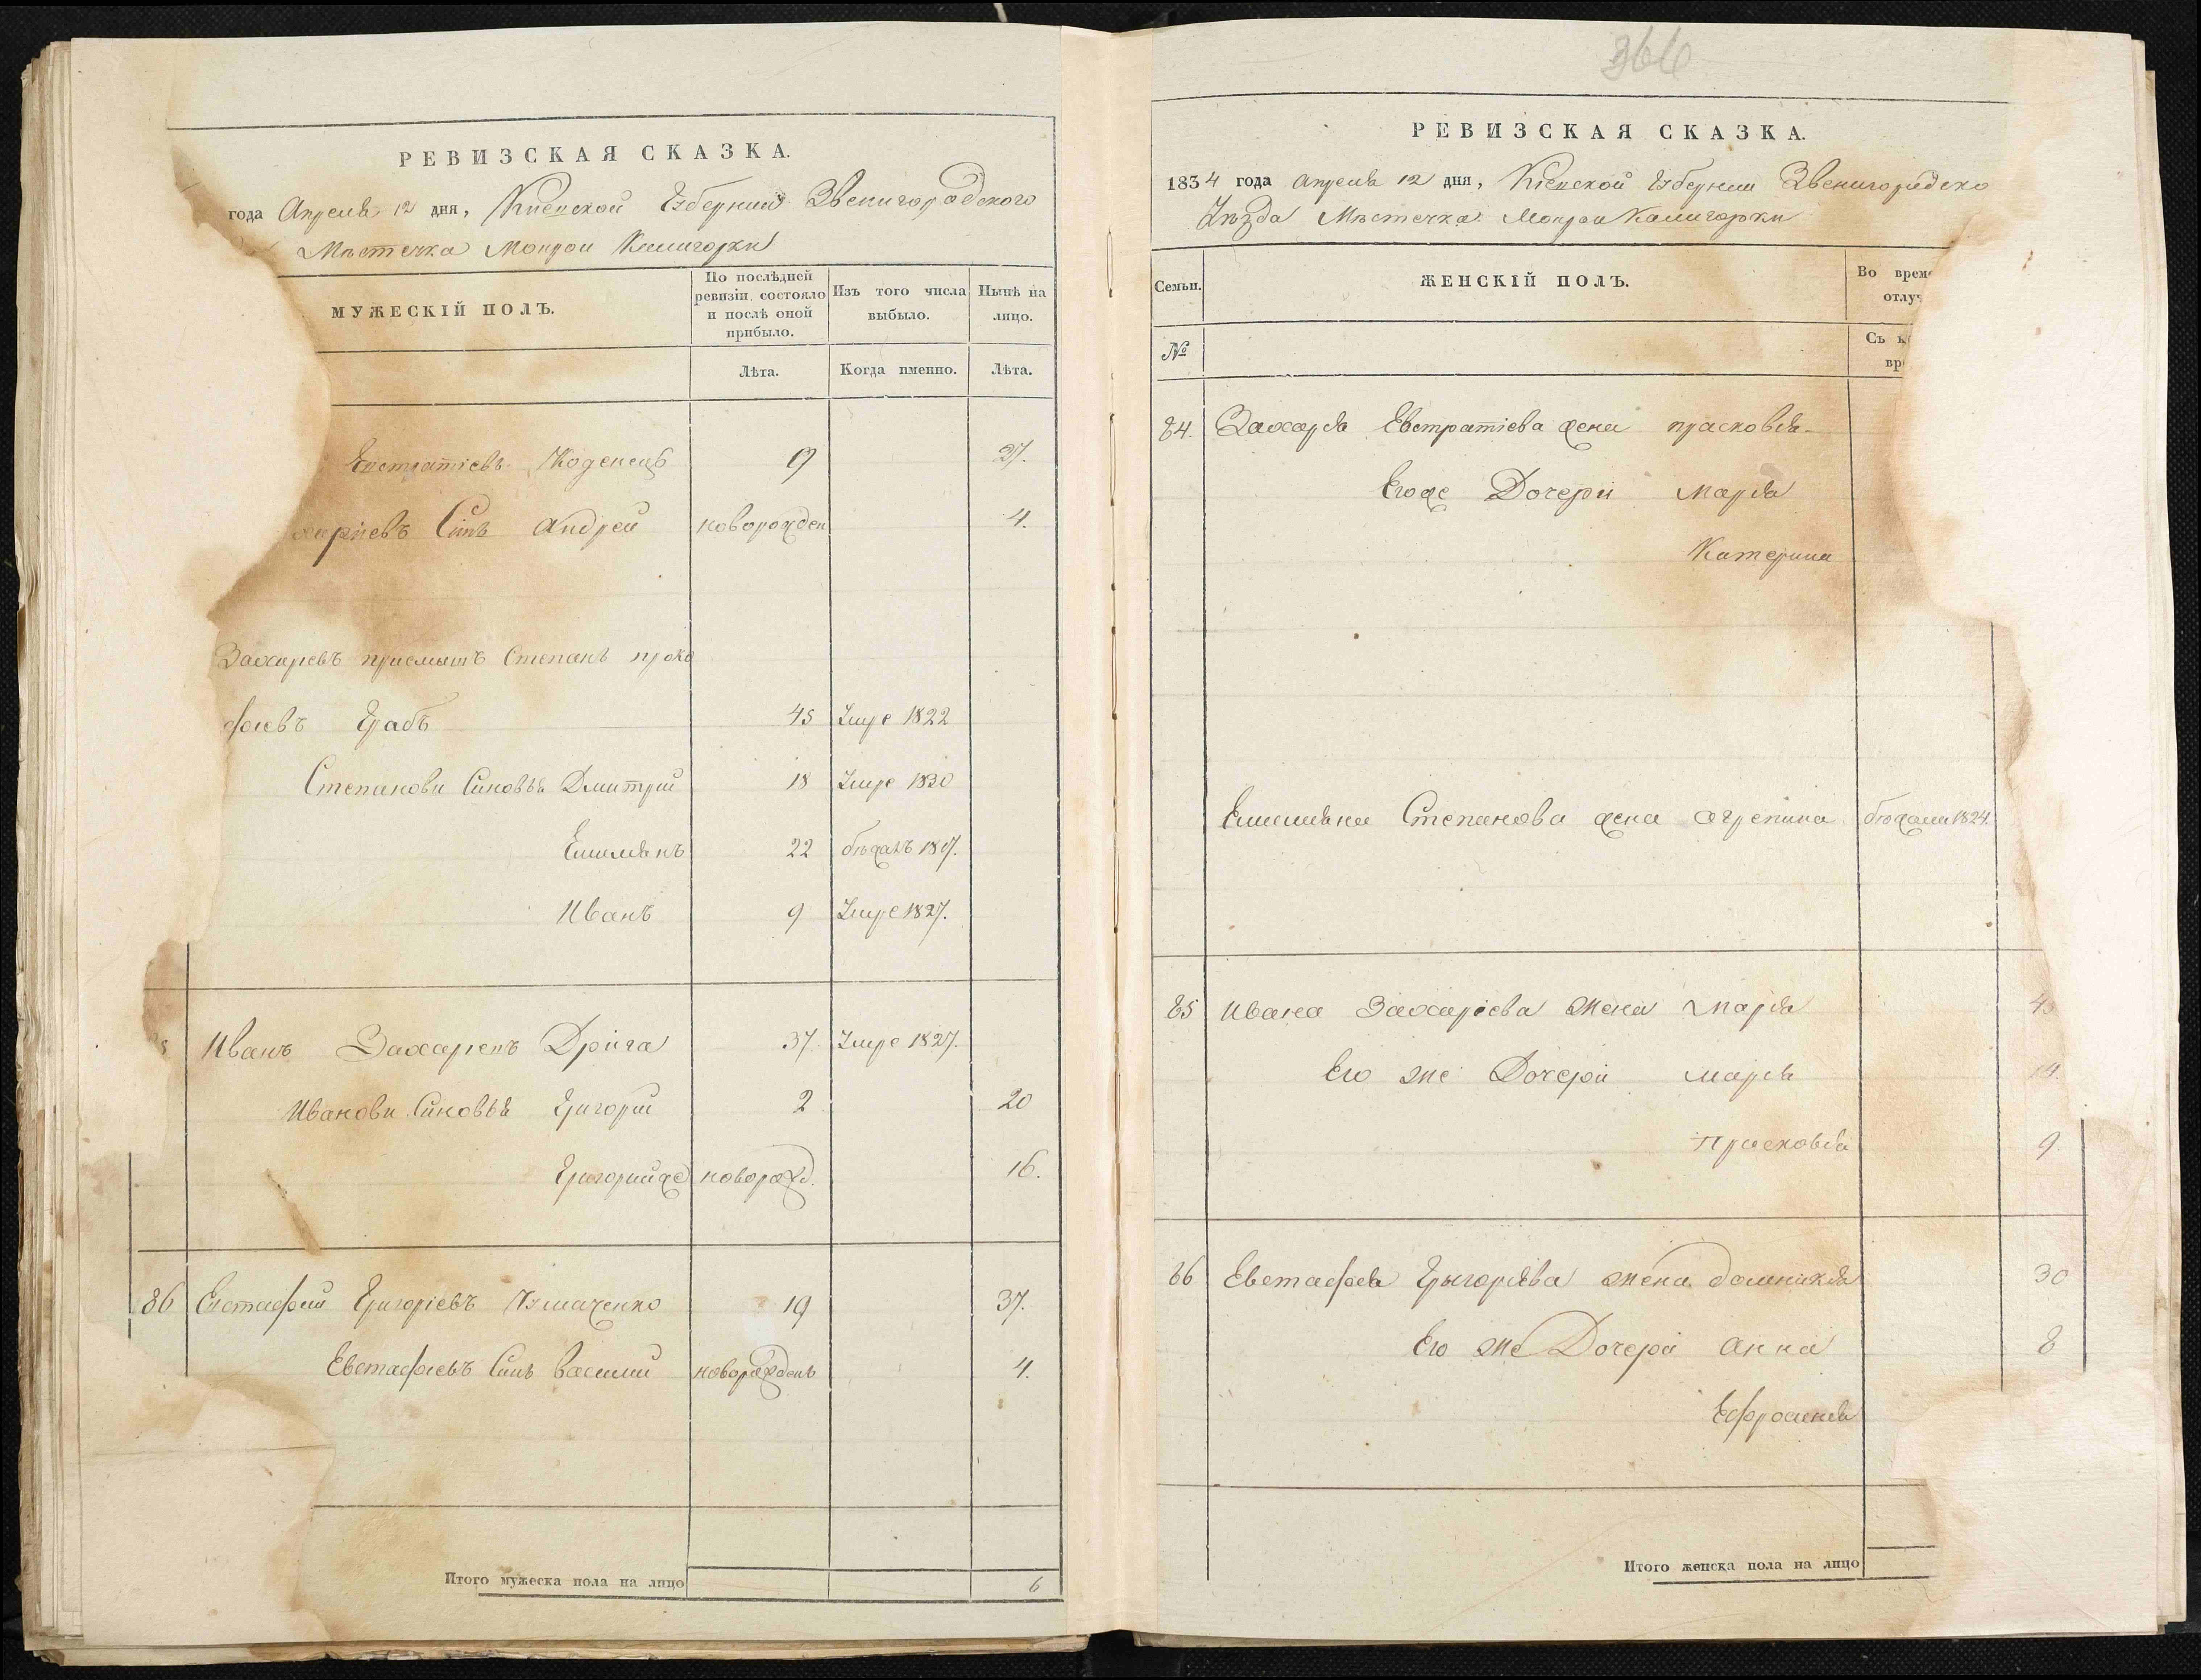 РЕВИЗСКАЯ СКАЗКА.
года Апреля 12 дня, Киевской Губернии Звенигорадского
Мѣстечка Мокрои Калигорки
МУЖЕСКІЙ ПОЛЪ.
По послѣдней ревизіи состояло и послѣ оной прибыло.
Изъ того числа выбыло.
Нынѣ на лицо.
Лѣта.
Когда именно.
Лѣта.
Евстратіевъ 9 27.
Синъ Андрей новорожден 4.
Захаріевъ приемышъ Степанъ проко
фіевъ Грабъ 45 Умре 1822
Степанови Синовья Дмитрий 18 Умре 1830
Емилиянъ 22 бежалъ 18
Иванъ 9 Умре 1827.
Иванъ Захаріевъ Дрига 37. Умре 1827.
Иванови Синовья Григорий 2 20
Григорийже новорожд. 16.
86 Евстафий Григоріевъ 19 37.
Евстафіевъ Синъ Василий новорожденъ 4.
Итого мужеска пола на лицо 6
366
РЕВИЗСКАЯ СКАЗКА.
1834 года Апреля 12 дня, Кіевской Губернии Звенигорадско
Уѣзда Мѣстечка Мокрои Калигорки
Семьи.
ЖЕНСКІЙ ПОЛЪ.
Во врем
отлуч
№
Съ к
вр
84. Захаря Евстратіева жена прасковья
Егоже Дочери Марья
Катерина
Емилияна Степанова жена Агрепина бежала 1824.
85 Ивана Захаріева жена Марья 4
Его же Дочери Марья 14.
Прасковья 9.
86 Евстафія Грыгорьева жена домникія 30
Его же Дочери Анна 8
Ефросинья
Итого женска пола на лицо